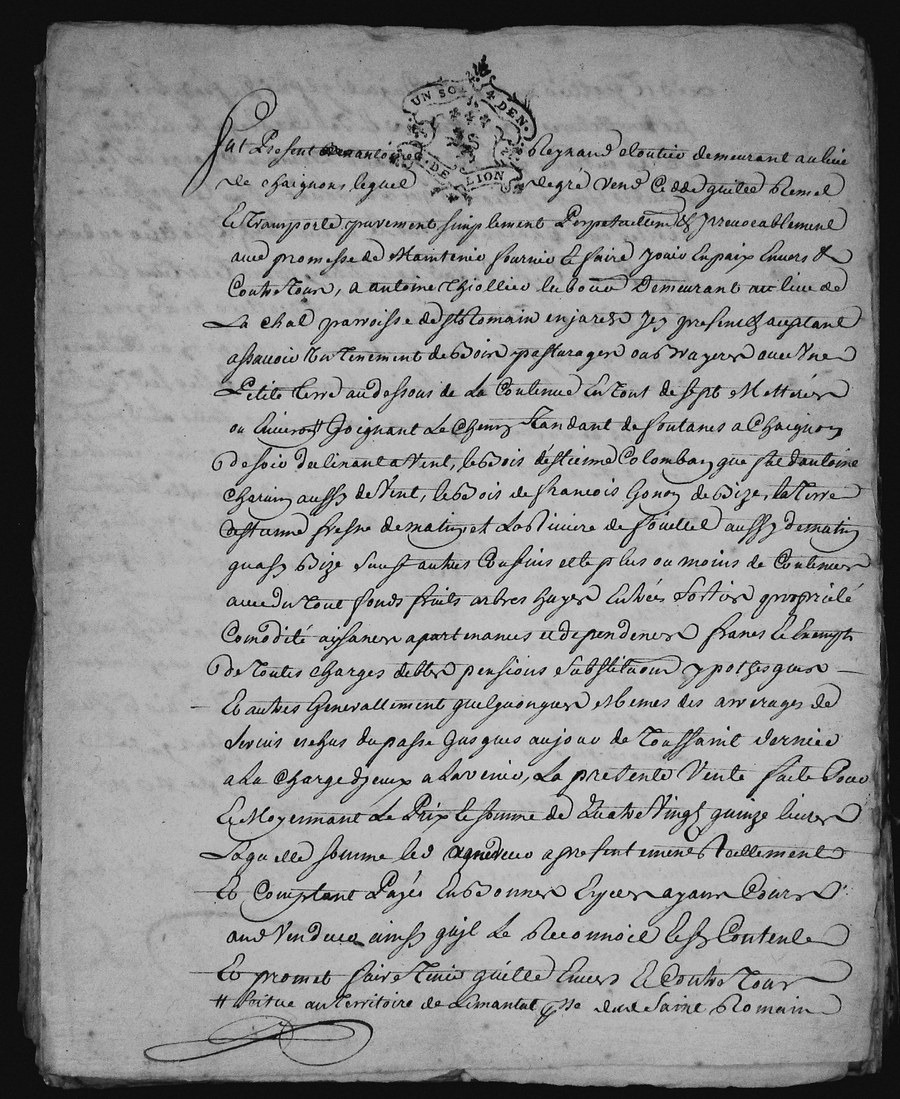 UN SOL 4 DEN.
G. DE LION
fut Present antoi Reynaud cloutier demeurant au lieu
de chaignon, lequel de gré vend Cedde quitte Remet
Et transporte purement simplement Perpetuellement & yrrevocablement
avec promesse de Maintenir fournir Et faire jouir En paix Envers &
Contre Tous, a antoine thiollier laboureur Demeurant au lieu de
La Chal parroisse de st Romain en jarest jcy present & aceptant
assavoir un Tenement de Bois pasturages avec Une
Petite terre au dessous de La Contenue En Tout de sept Metterées
ou Environ # Joignant Le Chemin Tandant de fontanes a Chaignon
De soir dulinant a Vent, le Bois destienne Colomban que fut dantoine
Charvin aussy de Vent, le Bois de francois Gonon de Bize, la Terre
destienne fresne de matin et La Riviere de aussy de matin
quasy Bize sauf autres Confins et le plus ou moins de Contenues
avec du Tout fonds fruits arbres hayes Entrées Sorties proprieté
Comodité aysances apartenances et dependences francs Et Exempts
De Toutes charges debtes pensions substitution ypotheques
Et autres Generallement quelquonques et Memes des arrerages de
servis echus du passe Jusques au jour de Toussaint dernier
a La Charge djceux a Lavenir, La presente Vente faite Pour
Et Moyennant Le Prix Et somme de Quatre Vingt quinze livres
Laquelle somme led aqnereur a presentement & réellement
Et Comptant Payée En Bonnes Especes ayant Cours
aud Vendeur ainsy qujl Le Reconnoit Et sen Contente
Et promet faire Tenir quitte Envers Et Contre Tous
# scitue au Territoire de psse dud Saint Romain